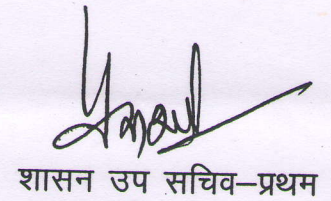 शासन उप सचिव–प्रथम